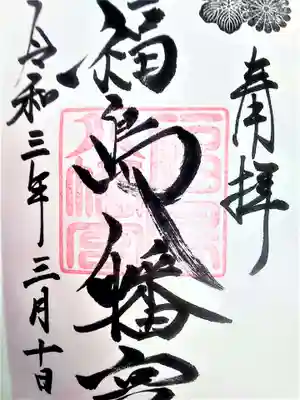 奉拝
福島八幡宮
令和三年三月十日